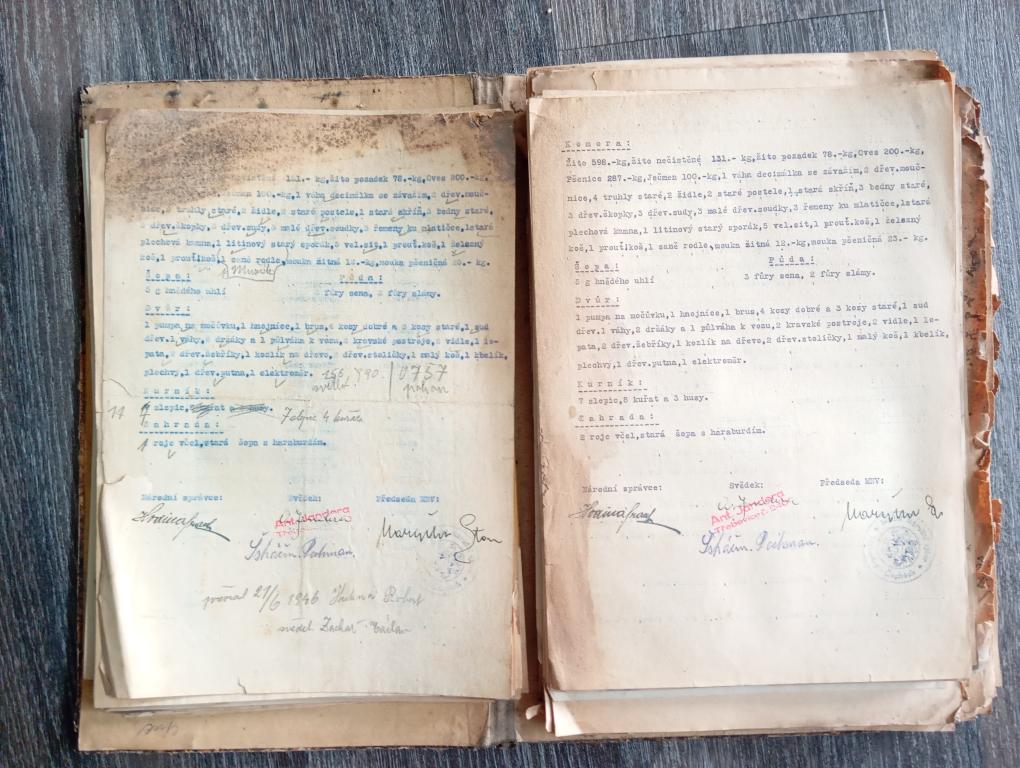 131.-kg,žito pozadek 78.-kg,Oves 200.-kg.
100.-kg,1 váha decimálka se závažím,2 dřev.mouč-
nice,4 truhly staré,2 židle,2 staré postele,1 stará skříň,3 bedny staré,
3 dřev.škopky,3 dřev.sudy,3 malé dřev.soudky,3 řemeny ku mlatičce,1stará
plechová kamna,1 litinový starý sporák,5 vel.sit,1 prout.koš,1 železný
koš,1 prout.koš,1 saně rodle,mouka žitná 12.-kg,mouka pšeničná 25.-kg.
Šopa: Půda:
5 q hnědého uhlí 3 fůry sena, 2 fůry slámy.
Dvůr:
1 pumpa na močůvku,1 hnojnice,1 brus,4 kosy dobré a 3 kosy staré,1 sud
dřev.1 váhy,2 držáky a 1 půlváha k vozu,2 kravské postroje,2 vidle,1 lo-
pata,2 dřev.žebříky,1 kozlík na dřevo,2 dřev.stoličky,1 malý koš,1 kbelík,
plechvý,1 dřev.putna,1 elektroměr.
Kurník:
11 slepic, a 3 husy. 7 slepic 4
Zahrada:
1 roje včel,stará šopa s haraburdím.
Národní správce: Svědek: Předseda MNV:
Ant. Jandera
21/6 1946
Komora:
Žito 598.-kg,žito nečistěné 131.- kg,žito pozadek 78.-kg,Oves 200.-kg.
Pšenice 287.-kg,Ječmen 100.-kg,1 váha decimálka se závažím,2 dřev.mouč-
nice,4 truhly staré,2 židle,2 staré postele,1.stará skříň,3 bedny staré,
3 dřev.škopky,3 dřev.sudy,3 malé dřev.soudky,3 řemeny ku mlatičce,1stará
plechová kamna,1 litinový starý sporák,5 vel.sit,1 prout.koš,1 železný
koš,1 prout.koš,1 saně rodle,mouka žitná 12.-kg,mouka pšeničná 25.-kg.
Šopa: Půda:
5 q hnědého uhlí 3 fůry sena, 2 fůry slámy.
Dvůr:
1 pumpa na močůvku,1 hnojnice,1 brus,4 kosy dobré a 3 kosy staré,1 sud
dřev.1 váhy,2 držáky a 1 půlváha k vozu,2 kravské postroje,2 vidle,1 lo-
pata,2 dřev.žebříky,1 kozlík na dřevo,2 dřev.stoličky,1 malý koš,1 kbelík,
plechvý,1 dřev.putna,1 elektroměr.
Kurník:
7 slepic,8 kuřat a 3 husy.
Zahrada:
2 roje včel,stará šopa s haraburdím.
Národní správce: Svědek: Předseda MNV:
Ant. Jandera